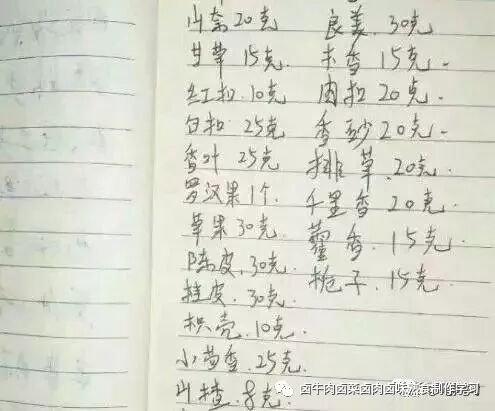 山奈20克
甘草15克.
红扣.10克
白扣 25克
香叶 25克
罗汉果1个.
草果30克.
陈皮.30克.
桂皮.30克.
枳壳.10克.
小茴香.25克.
山楂.8克.
良姜.30克
木香15克.
肉扣20克.
香砂20克.
排草.20克.
千里香20克.
藿香.15克.
栀子.15克.
卤牛肉卤菜卤肉卤味熟食制作学习